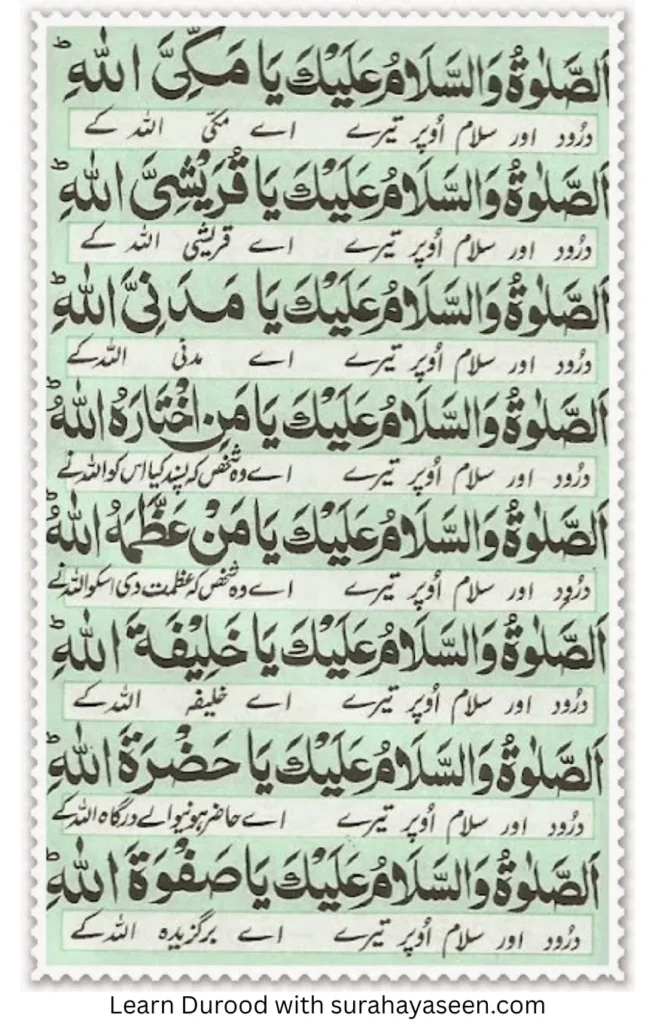 اَلصَّلٰوةُ وَالسَّلَامُ عَلَيْكَ يَا مَكِّيَّ اللّٰهِ ؕ
درُود اور سلام اُوپر تیرے اے مکّی اللہ کے
اَلصَّلٰوةُ وَالسَّلَامُ عَلَيْكَ يَا قُرَيْشِيَّ اللّٰهِ ؕ
درُود اور سلام اُوپر تیرے اے قریشی اللہ کے
اَلصَّلٰوةُ وَالسَّلَامُ عَلَيْكَ يَا مَدَنِيَّ اللّٰهِ ؕ
درُود اور سلام اُوپر تیرے اے مدنی اللہ کے
اَلصَّلٰوةُ وَالسَّلَامُ عَلَيْكَ يَا مَنِ اخْتَارَهُ اللّٰهُ ؕ
درُود اور سلام اُوپر تیرے اے وہ شخص کہ پسند کیا اس کو اللہ نے
اَلصَّلٰوةُ وَالسَّلَامُ عَلَيْكَ يَا مَنْ عَظَّمَهُ اللّٰهُ ؕ
درُود اور سلام اُوپر تیرے اے وہ شخص کہ عظمت دی اسکو اللہ نے
اَلصَّلٰوةُ وَالسَّلَامُ عَلَيْكَ يَا خَلِيْفَةَ اللّٰهِ ؕ
درُود اور سلام اُوپر تیرے اے خلیفہ اللہ کے
اَلصَّلٰوةُ وَالسَّلَامُ عَلَيْكَ يَا حَضْرَةَ اللّٰهِ ؕ
درُود اور سلام اُوپر تیرے اے حاضر ہونیوالے درگاہ اللہ کے
اَلصَّلٰوةُ وَالسَّلَامُ عَلَيْكَ يَا صَفْوَةَ اللّٰهِ ؕ
درُود اور سلام اُوپر تیرے اے برگزیدہ اللہ کے
Learn Durood with surahayaseen.com